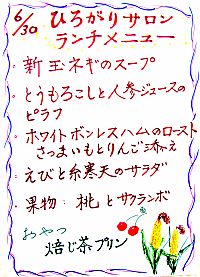 6/30 ひろがりサロン
ランチメニュー
・新玉ネギのスープ
・とうもろこしと人参ジュースの
ピラフ
・ホワイトボンレスハムのロースト
さつまいもとりんご添え
・えびと糸寒天のサラダ
・果物:桃とサクランボ
おやつ
焙じ茶プリン